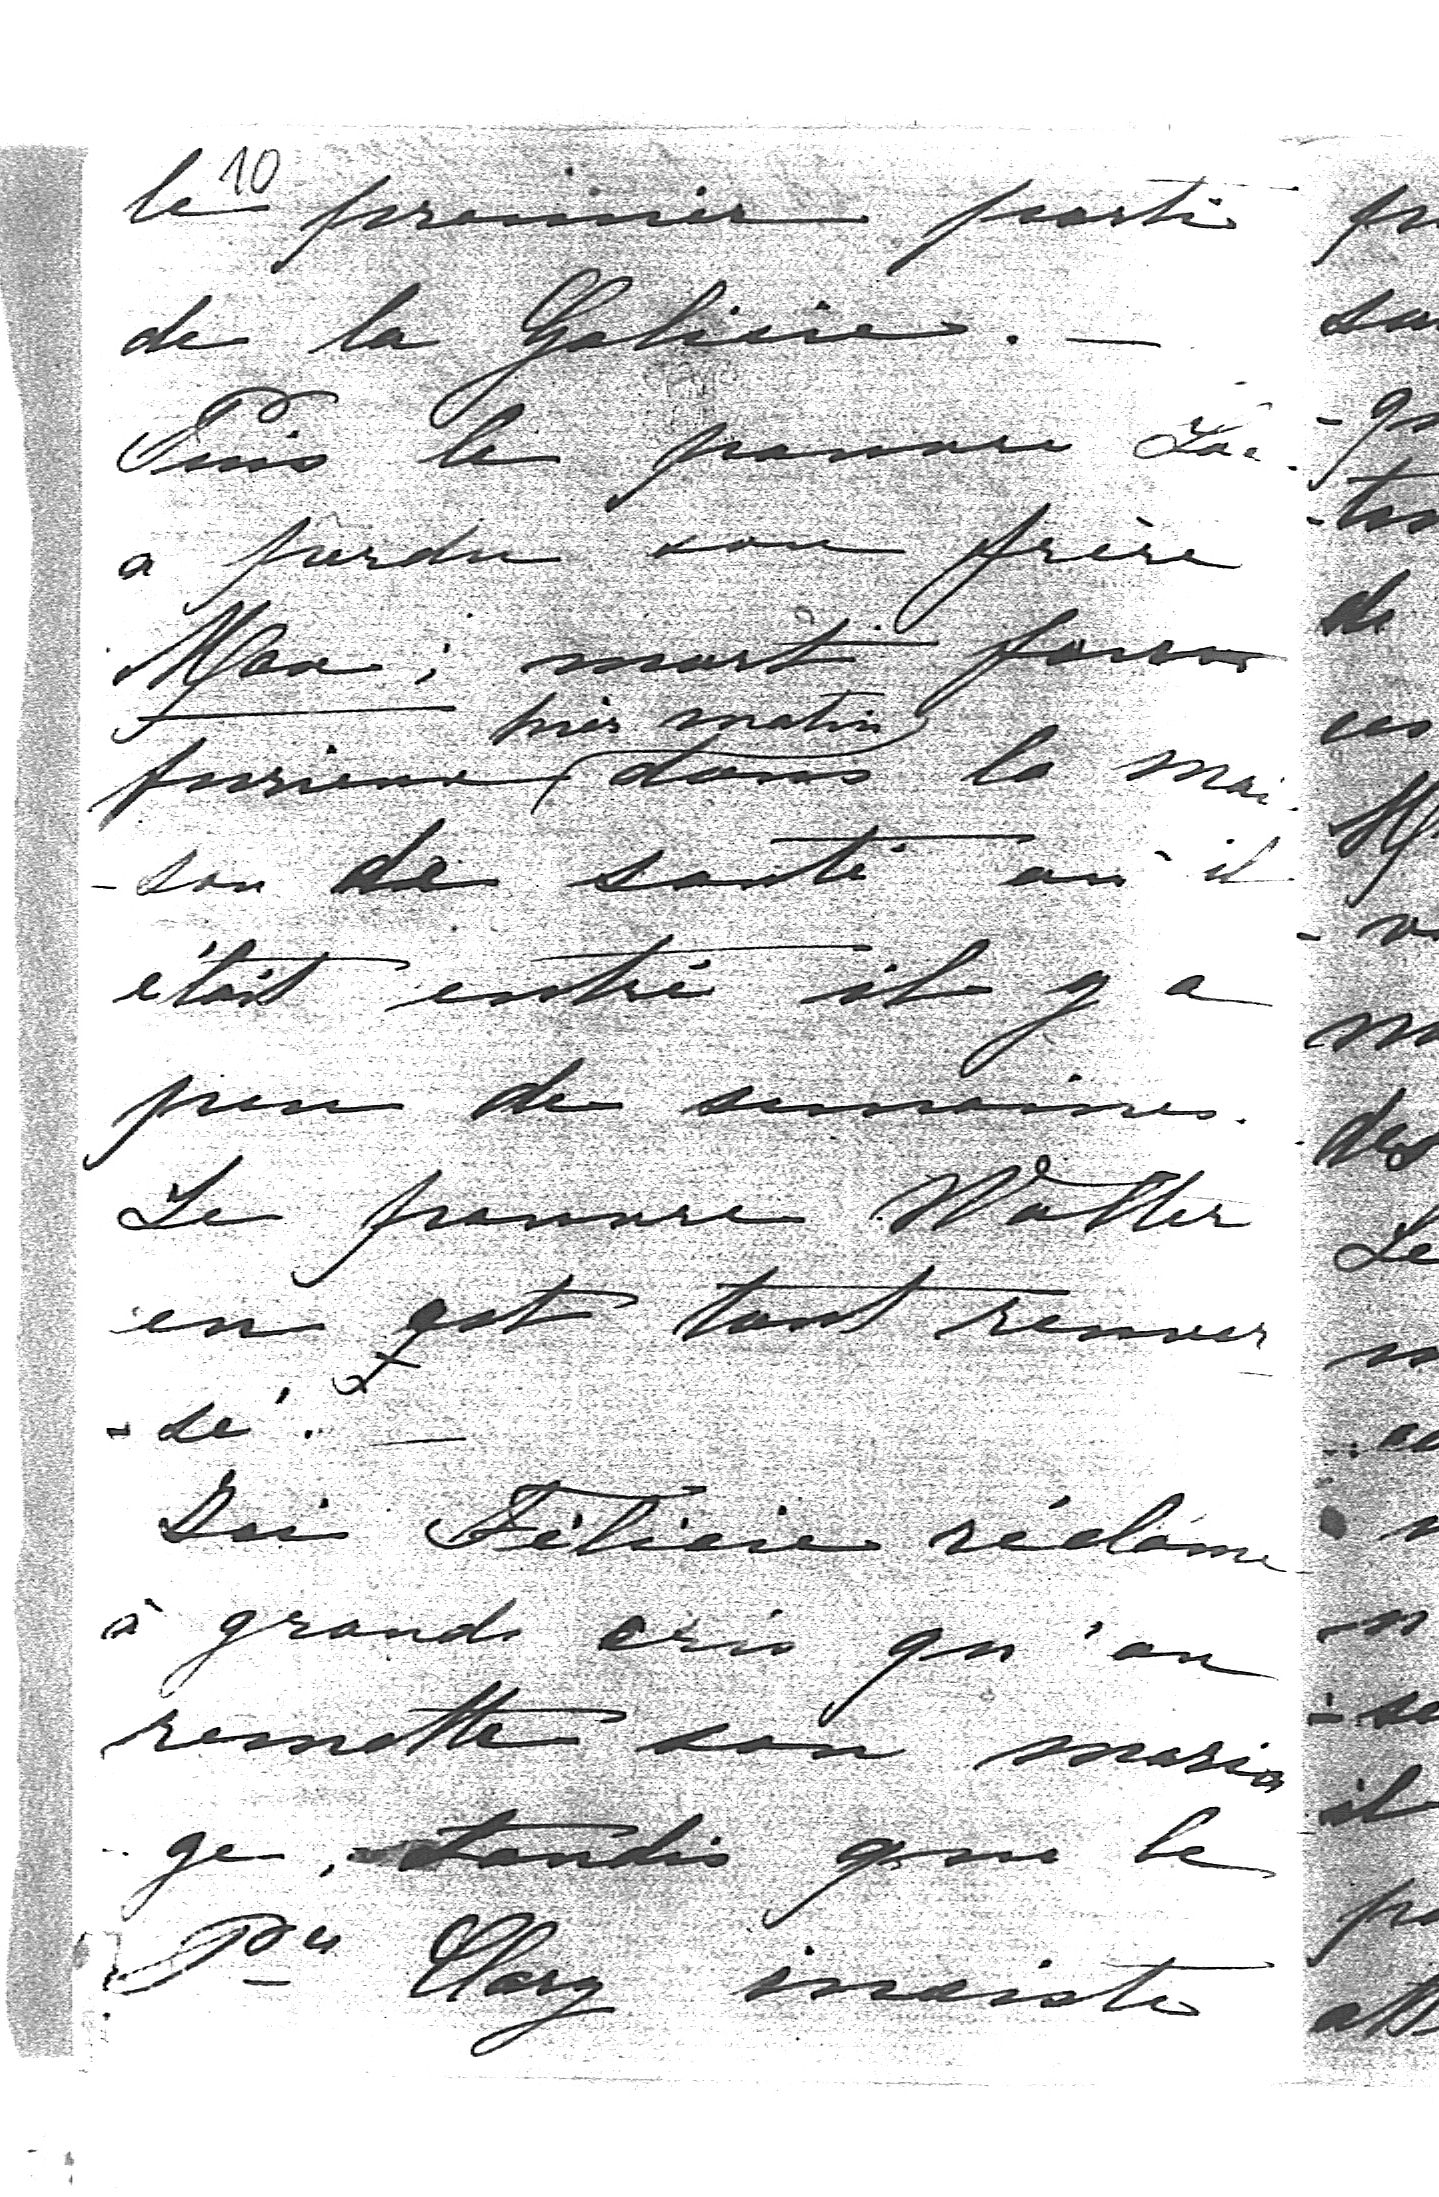 10
le premier parti
de la Galicie. —
Puis le pauvre
a perdu son frère
Max ; mort fou
furieux hier matin dans la mai-
-son de santé où il
était entré il y a
peu de semaines.
Le pauvre Walter
en est tout renver
-sé. —
Félicie réclame
à grands cris qu'on
remette son maria
ge, tandis que le
Pce Clary insiste